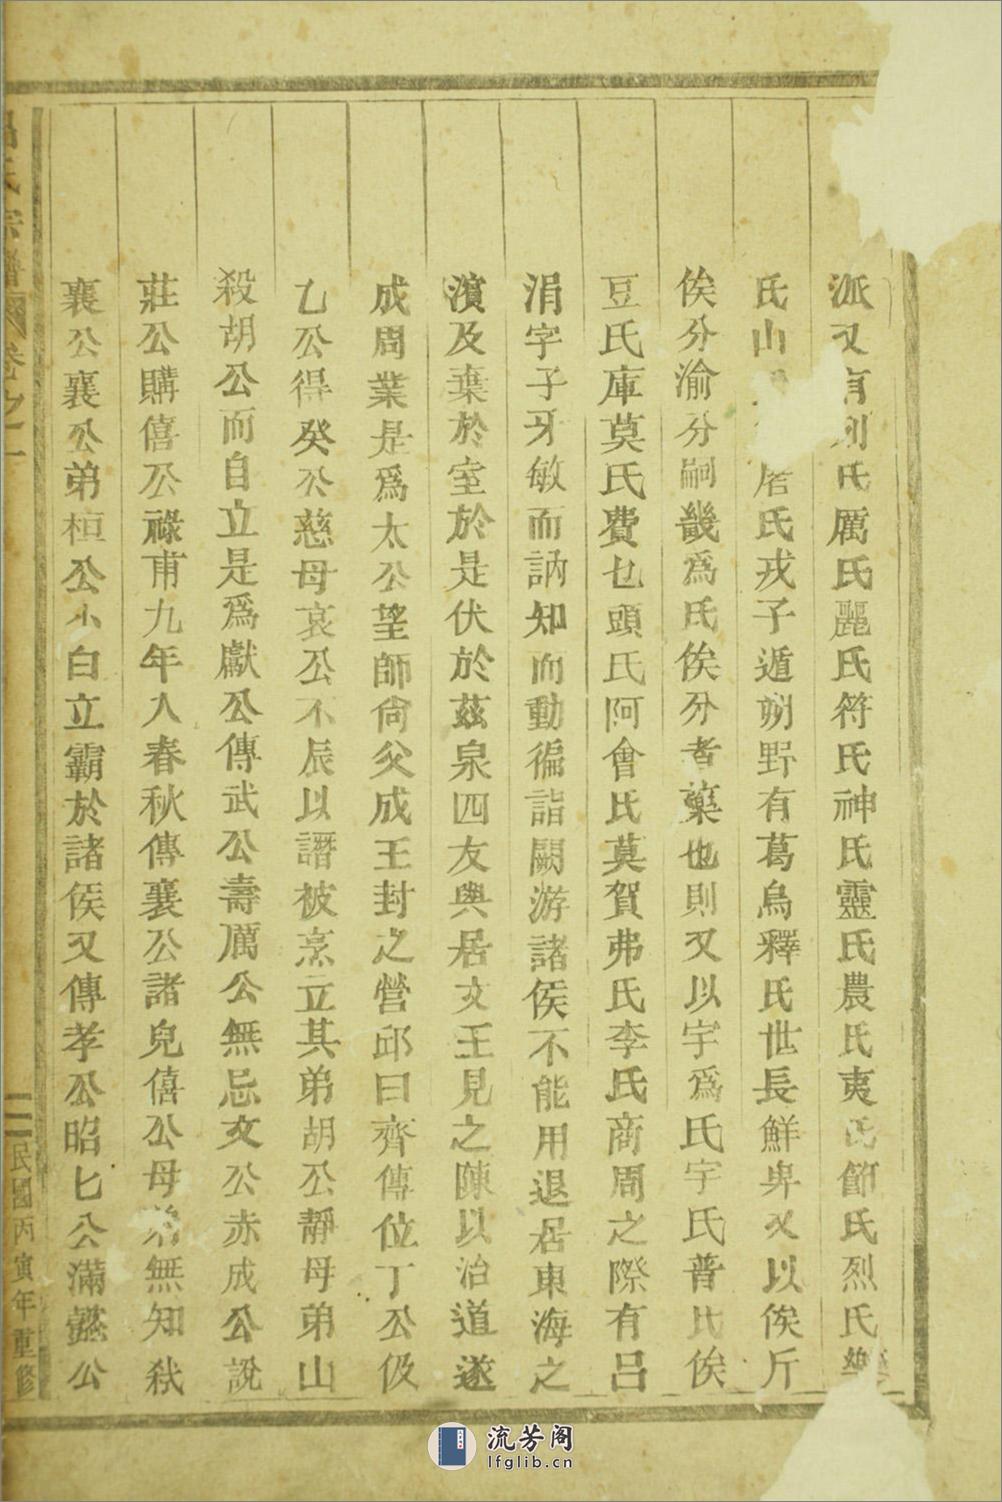 派又有列氏厲氏麗氏符氏神氏靈氏農氏夷氏節氏烈氏樂
氏山氏戎子遁朔野有葛烏釋氏世長鮮卑又以俟斤
俟分渝分嗣畿爲氏俟分者藥也則又以宇爲氏宇氏普氏俟
豆氏庫莫氏費乜頭氏阿會氏莫賀弗氏李氏商周之際有吕
涓字子牙敏而訥知而動徧詣闕游諸侯不能用退居東海之
濱及棄於室於是伏於茲泉四友與居文王見之陳以治道遂
成周業是爲太公望師尚父成王封之營邱曰齊傳位丁公伋
乙公得癸公慈母哀公不辰以譖被烹立其弟胡公靜母弟山
殺胡公而自立是爲獻公傳武公壽厲公無忌文公赤成公說
莊公購僖公祿甫九年入春秋傳襄公諸兒僖公母弟無知弒
襄公襄公弟桓公小白立霸於諸侯又傳孝公昭匕公滿懿公
吕氏宗譜 卷之一
二 民國丙寅年重修
流芳阁
lfglib.cn